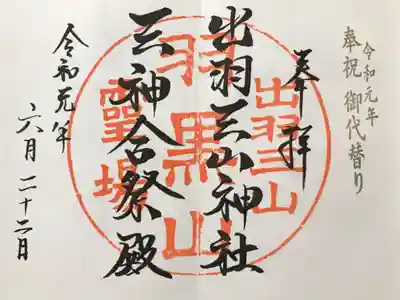 令和元年
奉祝 御代替り
奉拝
出羽三山神社
三神合祭殿
令和元年
六月二十二日
出羽三山
羽黒山
霊場